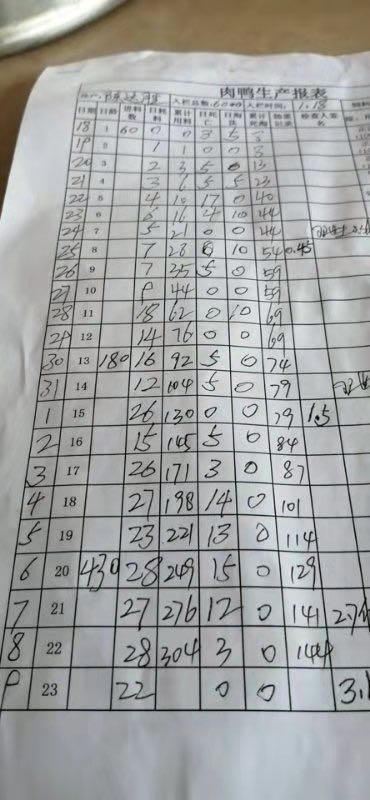 肉鸭生产报表
入栏总数:6000 入栏时间: 1.18
日期 日龄 进料数 日耗料 累计用料 日死亡 日淘汰 累计死淘 检查人签名
18 1 60 0 0 3 5
19 2 1 1 0 0
20 3 2 3 5 13
21 4 3 6 5 5 23
22 5 4 10 17 0 40
23 6 6 16 4 10 44
24 7 5 21 0 0 44
25 8 7 28 0 10 54 0.45
26 9 7 35 5 0 59
27 10 9 44 0 0 59
28 11 18 62 0 10 69
29 12 14 76 0 0 69
30 13 180 16 92 5 0 74
31 14 12 104 5 0 79
1 15 26 130 0 0 79 1.5
2 16 15 145 5 0 84
3 17 26 171 3 0 87
4 18 27 198 14 0 101
5 19 23 221 13 0 114
6 20 430 28 249 15 0 129
7 21 27 276 12 0 141
8 22 28 304 3 0 144
9 23 22 0 0